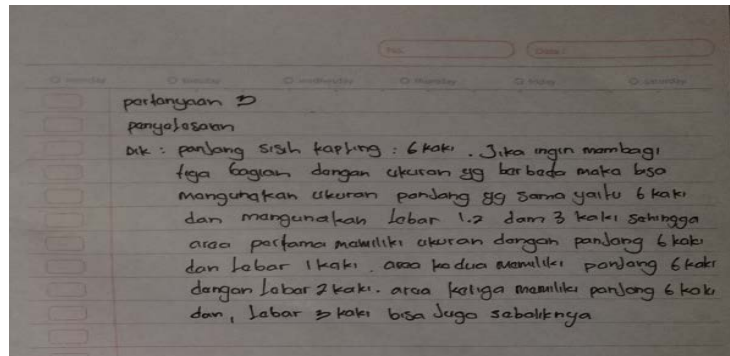 No. Date:
monday tuesday wednesday thursday friday saturday
partanyaan 3
panyalasaian
Dik : panjang sisih kapling : 6 kaki . Jika ingin mambagi
tiga bagian dangan ukuran yg barbada maka bisa
mangunakan ukuran panjang yg sama yaitu 6 kaki
dan mangunakan labar 1.2 dam 3 kaki sahingga
araa partama mamiliki ukuran dangan panjang 6 kaki
dan labar 1 kaki . araa kadua mamiliki panjang 6 kaki
dangan labar 2 kaki. araa katiga mamiliki panjang 6 kaki
dan, labar 3 kaki bisa Juga sabaliknya